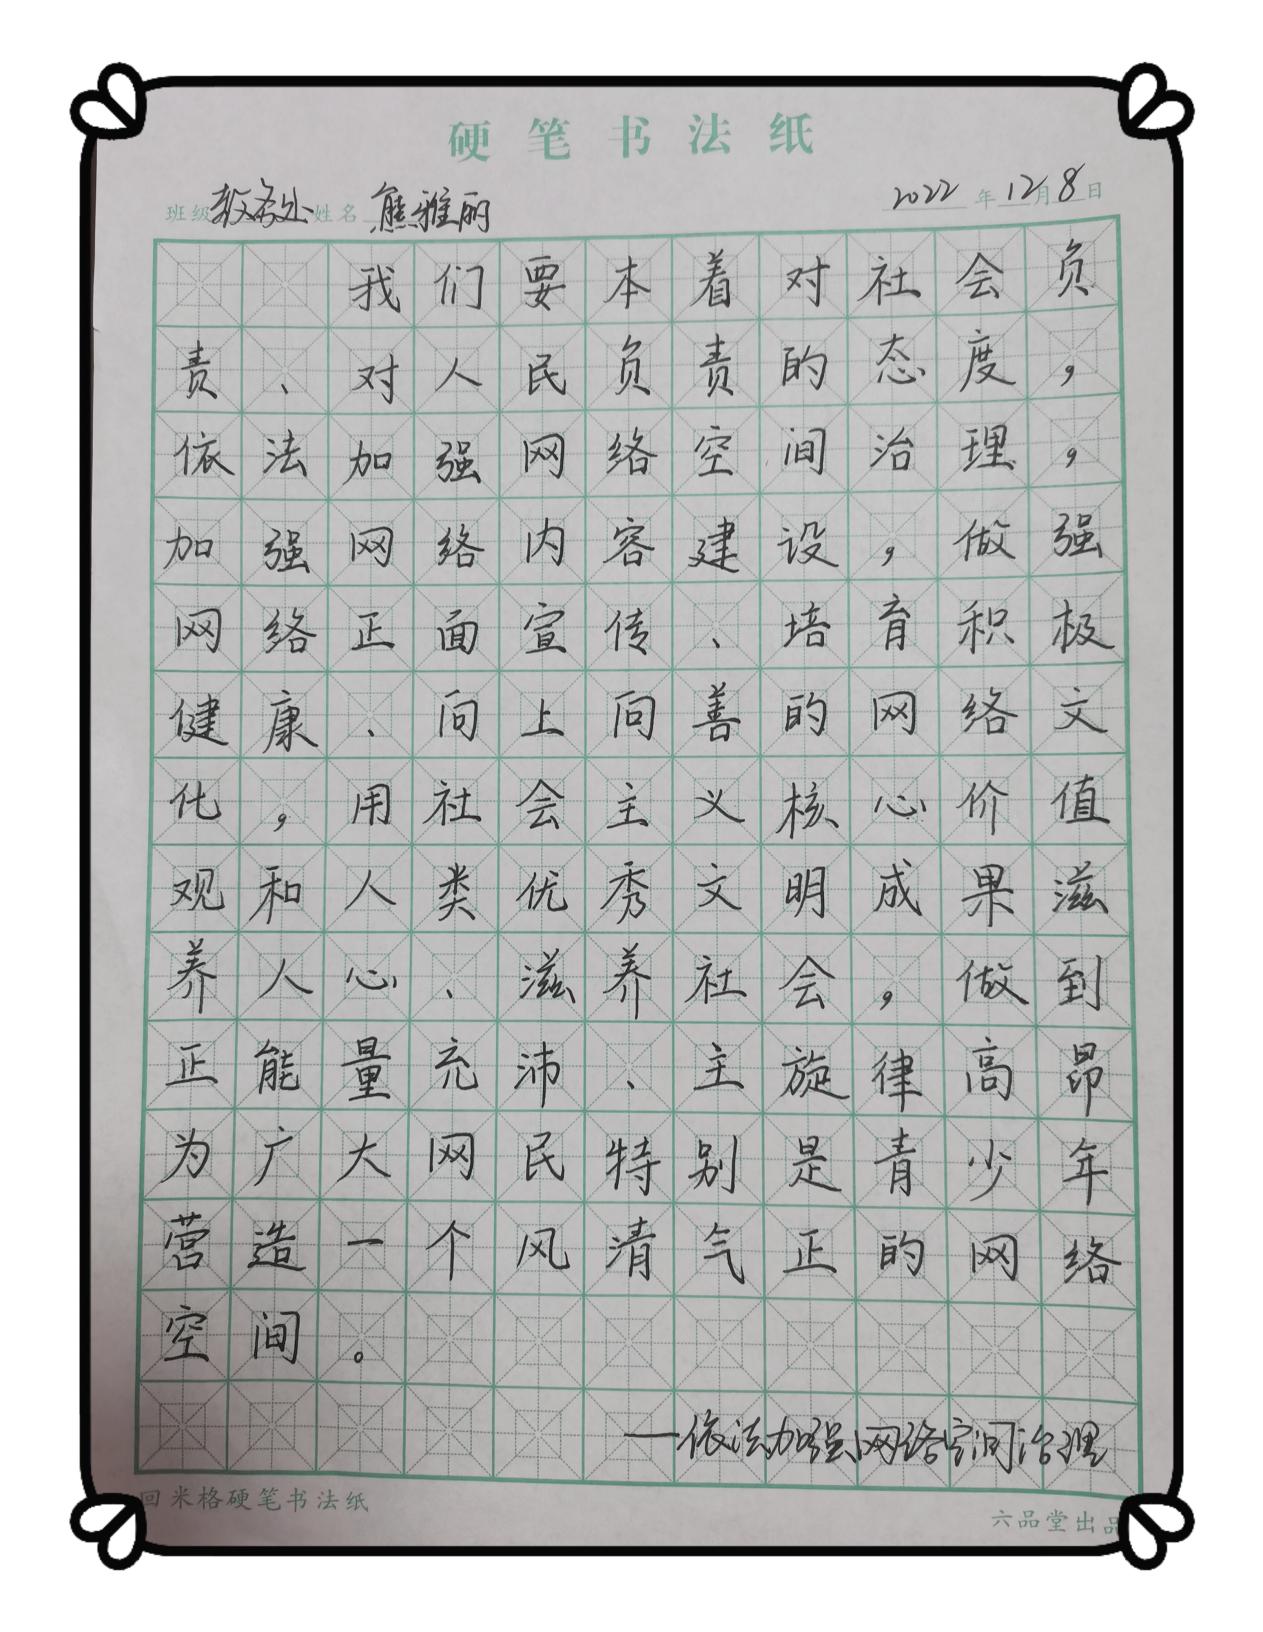 硬笔书法纸
班级 教务处 姓名 熊雅丽 2022年12月8日
我们要本着对社会负
责、对人民负责的态度，
依法加强网络空间治理，
加强网络内容建设，做强
网络正面宣传、培育积极
健康、向上向善的网络文
化，用社会主义核心价值
观和人类优秀文明成果滋
养人心、滋养社会，做到
正能量充沛、主旋律高昂
为广大网民特别是青少年
营造一个风清气正的网络
空间。
——依法加强网络空间治理
回米格硬笔书法纸 六品堂出品